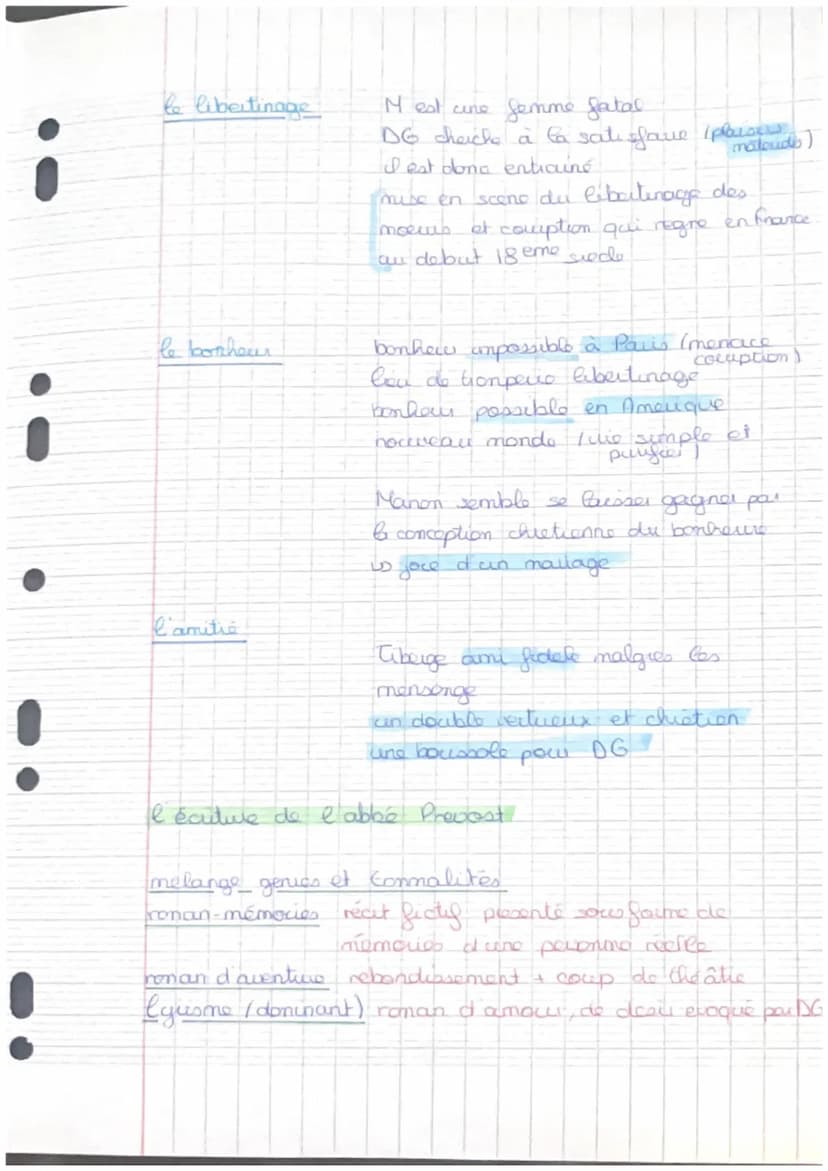 le libertinage
M est une femme fatal
DG cherche à la satisfaire (plaisirs
matériels)
il est donc entrainé
mise en scene du libertinage des
moeurs et coruption qui regne en france
au debut 18 eme siecle
le bonheur
bonheur impossible à Paris (menace
coruption)
lieu de tromperie libertinage
bonheur possible en Amerique
nouveau monde (vie simple et
purifier)
Manon semble se laisser gagner par
la conception chretienne du bonheure
↳ d'un mariage
l'amitié
Tiberge ami fidele malgres les
mensonge
un double vertueux et chrétien
une boussole pour DG
l'écriture de l'abbé Prevost
melange genres et tonnalités
roman-mémories récit fictif présenté sous forme de
mémories d'une personne réelle
roman d'aventure rebondissement + coup de théâtre
lyrisme (dominant) roman d'amour, de desir evoqué par DG